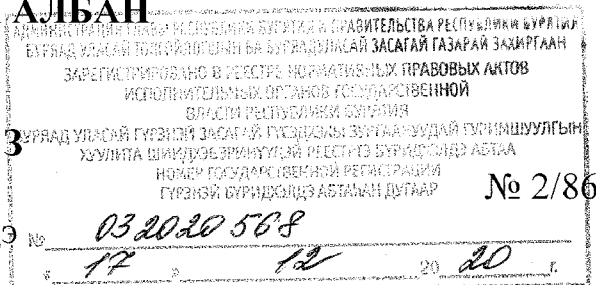 АЛБАН
АДМИНИСТРАЦИЯ ГЛАВЫ РЕСПУБЛИКИ БУРЯТИЯ И ПРАВИТЕЛЬСТВА РЕСПУБЛИКИ БУРЯТИЯ
БУРЯАД УЛАСАЙ ТОЛГОЙЛОГШЫН БА БУРЯАД УЛАСАЙ ЗАСАГАЙ ГАЗАРАЙ ЗАХИРГААН
ЗАРЕГИСТРИРОВАНО В РЕЕСТРЕ НОРМАТИВНЫХ ПРАВОВЫХ АКТОВ
ИСПОЛНИТЕЛЬНЫХ ОРГАНОВ ГОСУДАРСТВЕННОЙ
ВЛАСТИ РЕСПУБЛИКИ БУРЯТИЯ
З
БУРЯАД УЛАСАЙ ГҮРЭНЭЙ ЗАСАГАЙ
ХУУЛИТА РЕЕСТРТЭ БҮРИДХЭЛДЭ АБТАА
НОМЕР ГОСУДАРСТВЕННОЙ РЕГИСТРАЦИИ
ГҮРЭНЭЙ БҮРИДХЭЛДЭ АБТАҺАН ДУГААР
№ 2/86
Э
№ 032020568
« 17 » 12 20 20 г.